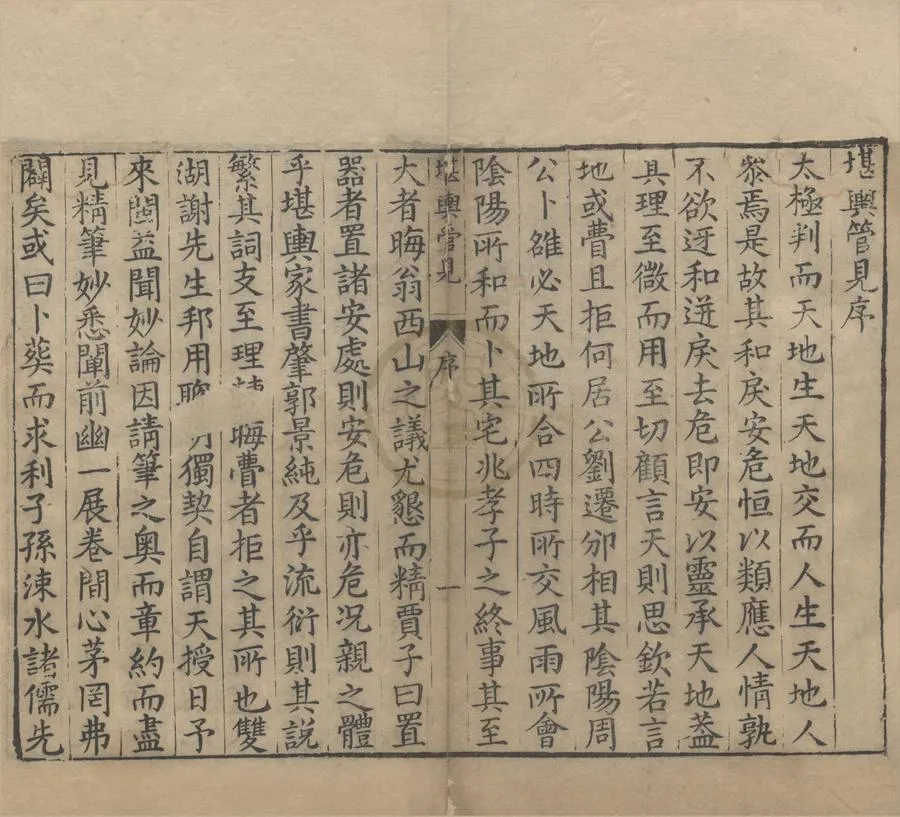 堪輿管見序
太極判而天地生天地交而人生天地人
叅焉是故其和戾安危恒以類應人情孰
不欲迓和迸戾去危即安以靈承天地葢
具理至微而用至切顧言天則思欽若言
地或瞢且拒何居公劉遷邠相其陰陽周
公卜雒必天地所合四時所交風雨所會
陰陽所和而卜其宅兆孝子之終事其至
堪輿管見 序 一
大者晦翁西山之議尤懇而精賈子曰置
器者置諸安處則安危則亦危况親之體
乎堪輿家書肇郭景純及乎流衍則其說
繁其詞支至理 晦瞢者拒之其所也雙
湖謝先生邦用 獨契自謂天授日予
來閩益聞妙論因請筆之奥而章約而盡
見精筆妙悉闡前幽一展卷間心茅罔弗
闢矣或曰卜葬而求利子孫涑水諸儒先